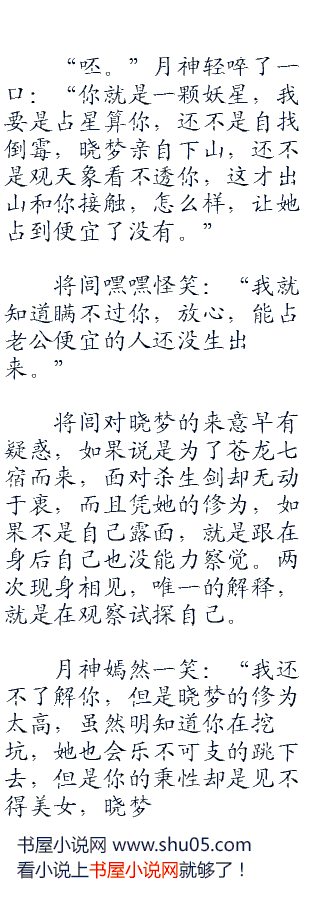 “呸。”月神轻啐了一
口：“你就是一颗妖星，我
要是占星算你，还不是自找
倒霉，晓梦亲自下山，还不
是观天象看不透你，这才出
山和你接触，怎么样，让她
占到便宜了没有。”
将闾嘿嘿怪笑：“我就
知道瞒不过你，放心，能占
老公便宜的人还没生出
来。”
将闾对晓梦的来意早有
疑惑，如果说是为了苍龙七
宿而来，面对杀生剑却无动
于衷，而且凭她的修为，如
果不是自己露面，就是跟在
身后自己也没能力察觉。两
次现身相见，唯一的解释，
就是在观察试探自己。
月神嫣然一笑：“我还
不了解你，但是晓梦的修为
太高，虽然明知道你在挖
坑，她也会乐不可支的跳下
去，但是你的秉性却是见不
得美女，晓梦
书屋小说网 www.shu05.com
看小说上书屋小说网就够了！